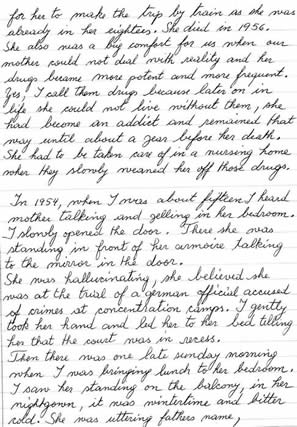 for her to make the trip by train as she was
already in her eighties. She died in 1956.
She also was a big comfort for us when our
mother could not deal with reality and her
drugs became more potent and more frequent.
Yes, I call them drugs because later on in
life she could not live without them, she
had become an addict and remained that
way until about a year before her death.
She had to be taken care of in a nursing home
wher they slowly weaned her off those drugs.
In 1954, when I was about fifteen I heard
mother talking and yelling in her bedroom.
I slowly opened the door. There she was
standing in front of her armoire talking
to the mirror in the door.
She was hallucinating, she believed she
was at the trial of a german official accused
of crimes at concentration camps. I gently
took her hand and led her to her bed telling
her that the court was in recess.
Then there was one late sunday morning
when I was bringing lunch to her bedroom.
I saw her standing on the balcony, in her
nightgown, it was wintertime and bitter
cold. She was uttering fathers name,